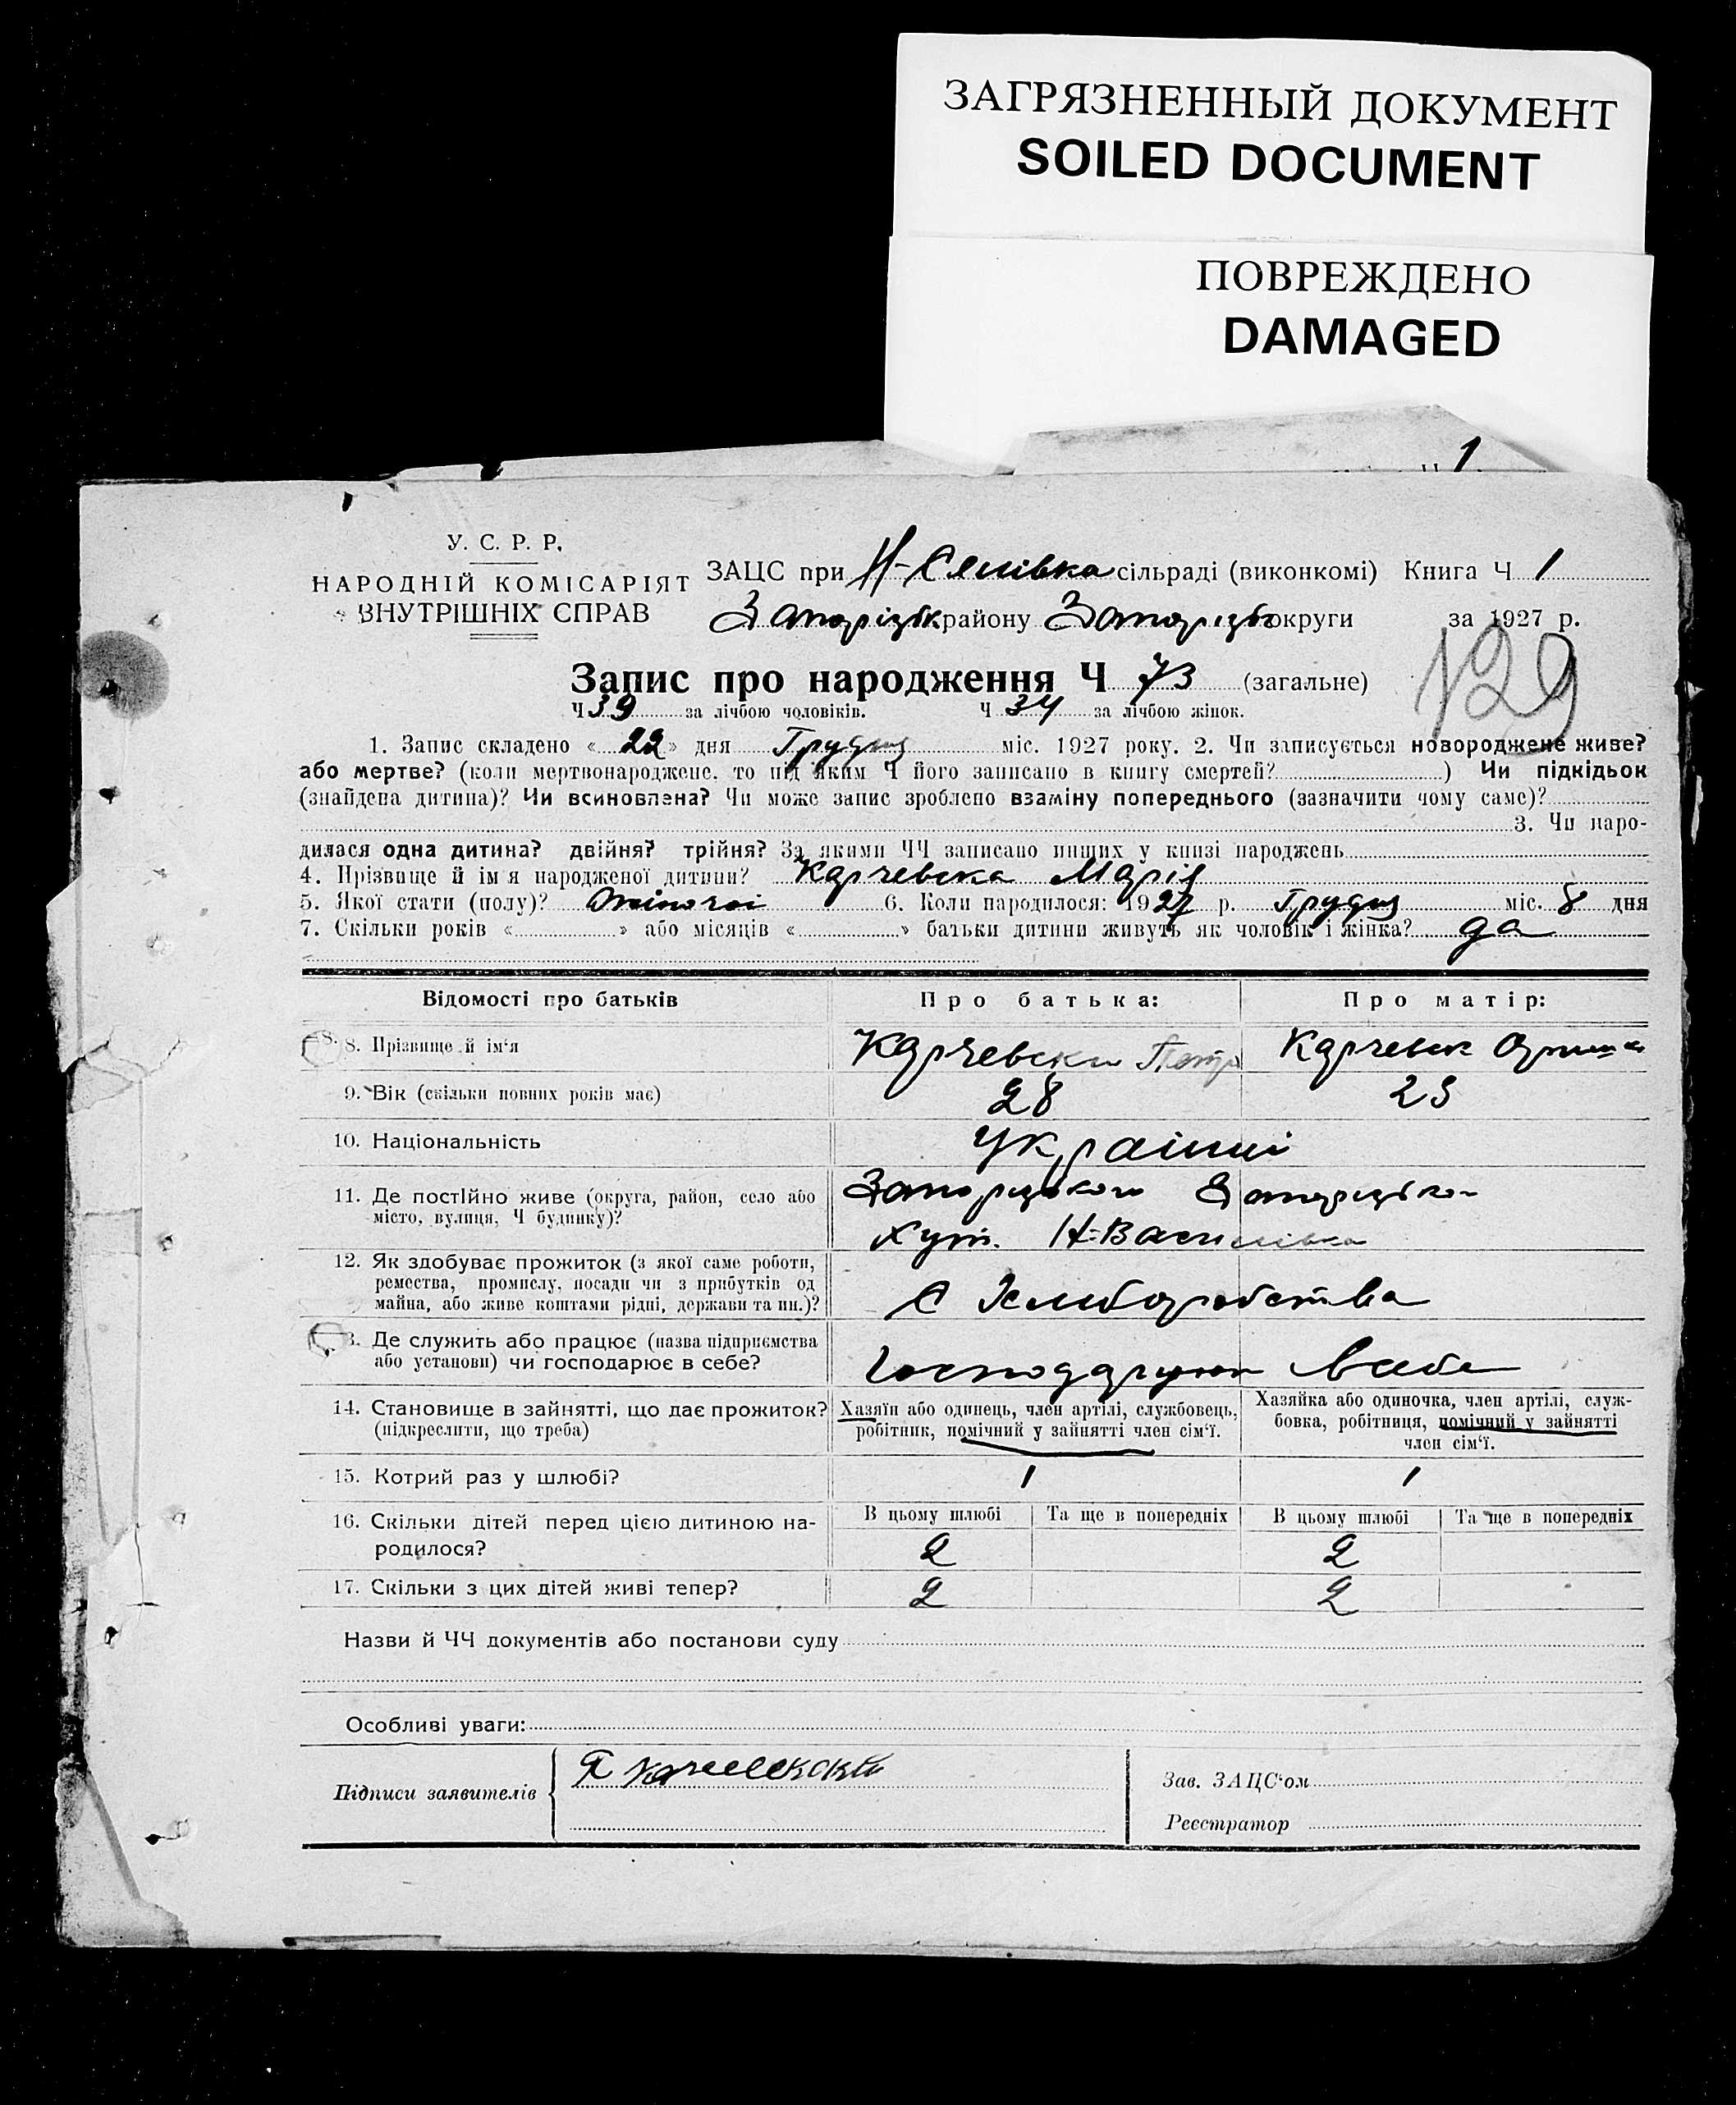 ЗАГРЯЗНЕННЫЙ ДОКУМЕНТ
SOILED DOCUMENT
ПОВРЕЖДЕНО
DAMAGED
1
У. С. Р. Р.
НАРОДНІЙ КОМІСАРІЯТ
ВНУТРІШНІХ СПРАВ
ЗАЦС при сільраді (виконкомі) Книга Ч 1
Запорізьк району Запорізьк округи за 1927 р.
129
Запис про народження Ч 73 (загальне)
Ч 39 за лічбою чоловіків. Ч 34 за лічбою жінок.
1. Запис складено « 22 » дня Грудня міс. 1927 року. 2. Чи записується новороджене живе?
або мертве? (коли мертвонароджене, то під яким Ч його записано в книгу смертей? ) Чи підкідьок
(знайдена дитина)? Чи всиновлена? Чи може запис зроблено взаміну попереднього (зазначити чому саме)?
3. Чи наро-
дилася одна дитина? двійня? трійня? За якими ЧЧ записано инших у книзі народжень
4. Прізвище й імʼя народженої дитини? Карчевска Марія
5. Якої стати (полу)? жіночоі 6. Коли народилося: 1927 р. Грудня міс. 8 дня
7. Скільки років « » або місяців « » батьки дитини живуть як чоловік і жінка? да
Відомості про батьків
Про батька:
Про матір:
8. Прізвище й імʼя Карчевски Петро Карчевск
9. Вік (скільки повних років має) 28 23
10. Національність Украінці
11. Де постійно живе (округа, район, село або Запорізького Запорізько
місто, вулиця, Ч будинку)? Хут. Н-Василівка
12. Як здобуває прожиток (з якої саме роботи,
ремества, промислу, посади чи з прибутків од
майна, або живе коштами рідні, держави та ин.)? С Хлиборобства
13. Де служить або працює (назва підприємства
або установи) чи господарює в себе? Господарюють всебе
14. Становище в зайнятті, що дає прожиток? Хазяїн або одинець, член артілі, службовець, Хазяйка або одиночка, член артілі, служ-
(підкреслити, що треба) робітник, помічний у зайнятті член сімʼї. бовка, робітниця, помічний у зайнятті
член сімʼї.
15. Котрий раз у шлюбі? 1 1
16. Скільки дітей перед цією дитиною на- В цьому шлюбі Та ще в попередніх В цьому шлюбі Та ще в попередніх
родилося? 2 2
17. Скільки з цих дітей живі тепер? 2 2
Назви й ЧЧ документів або постанови суду
Особливі уваги:
Підписи заявителів
Зав. ЗАЦСʼом
Реєстратор